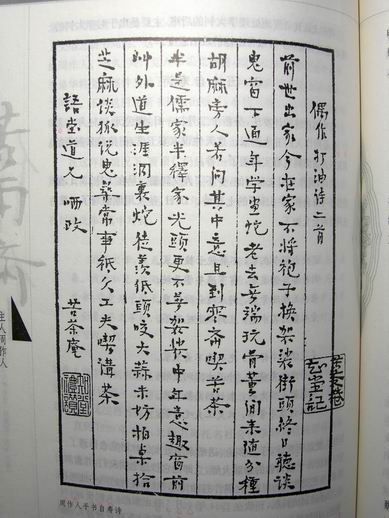 偶作打油诗二首
前世出家今在家不將袍子换袈裟街頭終日聽談
鬼窗下通年学画蛇老去無端玩骨董閒来随分種
胡麻旁人若问其中意且到寒斋喫苦茶
半是儒家半釋家光頭更不著袈裟中年意趣窗前
艸外道生涯洞裏蛇徒羡低頭咬大蒜未妨拍桌拾
芝麻谈狐说鬼尋常事祗欠工夫喫講茶
語堂道兄 哂政 苦茶庵
主人周作人
周作人手书自寿诗